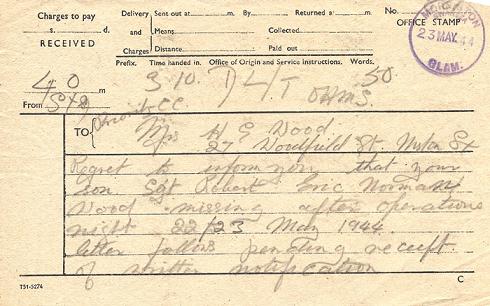 Charges to pay
s. d.
RECEIVED
Delivery and Charges
Sent out at m. By Returned a m.
Means Collected
Distance Paid out
No.
OFFICE STAMP
23 MAY 44
GLAM.
Prefix. Time handed in. Office of Origin and Service Instructions. Words.
40 3 10. 50
From OHMS
TO Mrs H E Wood
27 St.
Regret to inform you that your
son Sgt Robert Eric Norman
Wood missing after operations
night 22/23 May 1944
letter follows pending receipt
of written notification
T51-5274
C